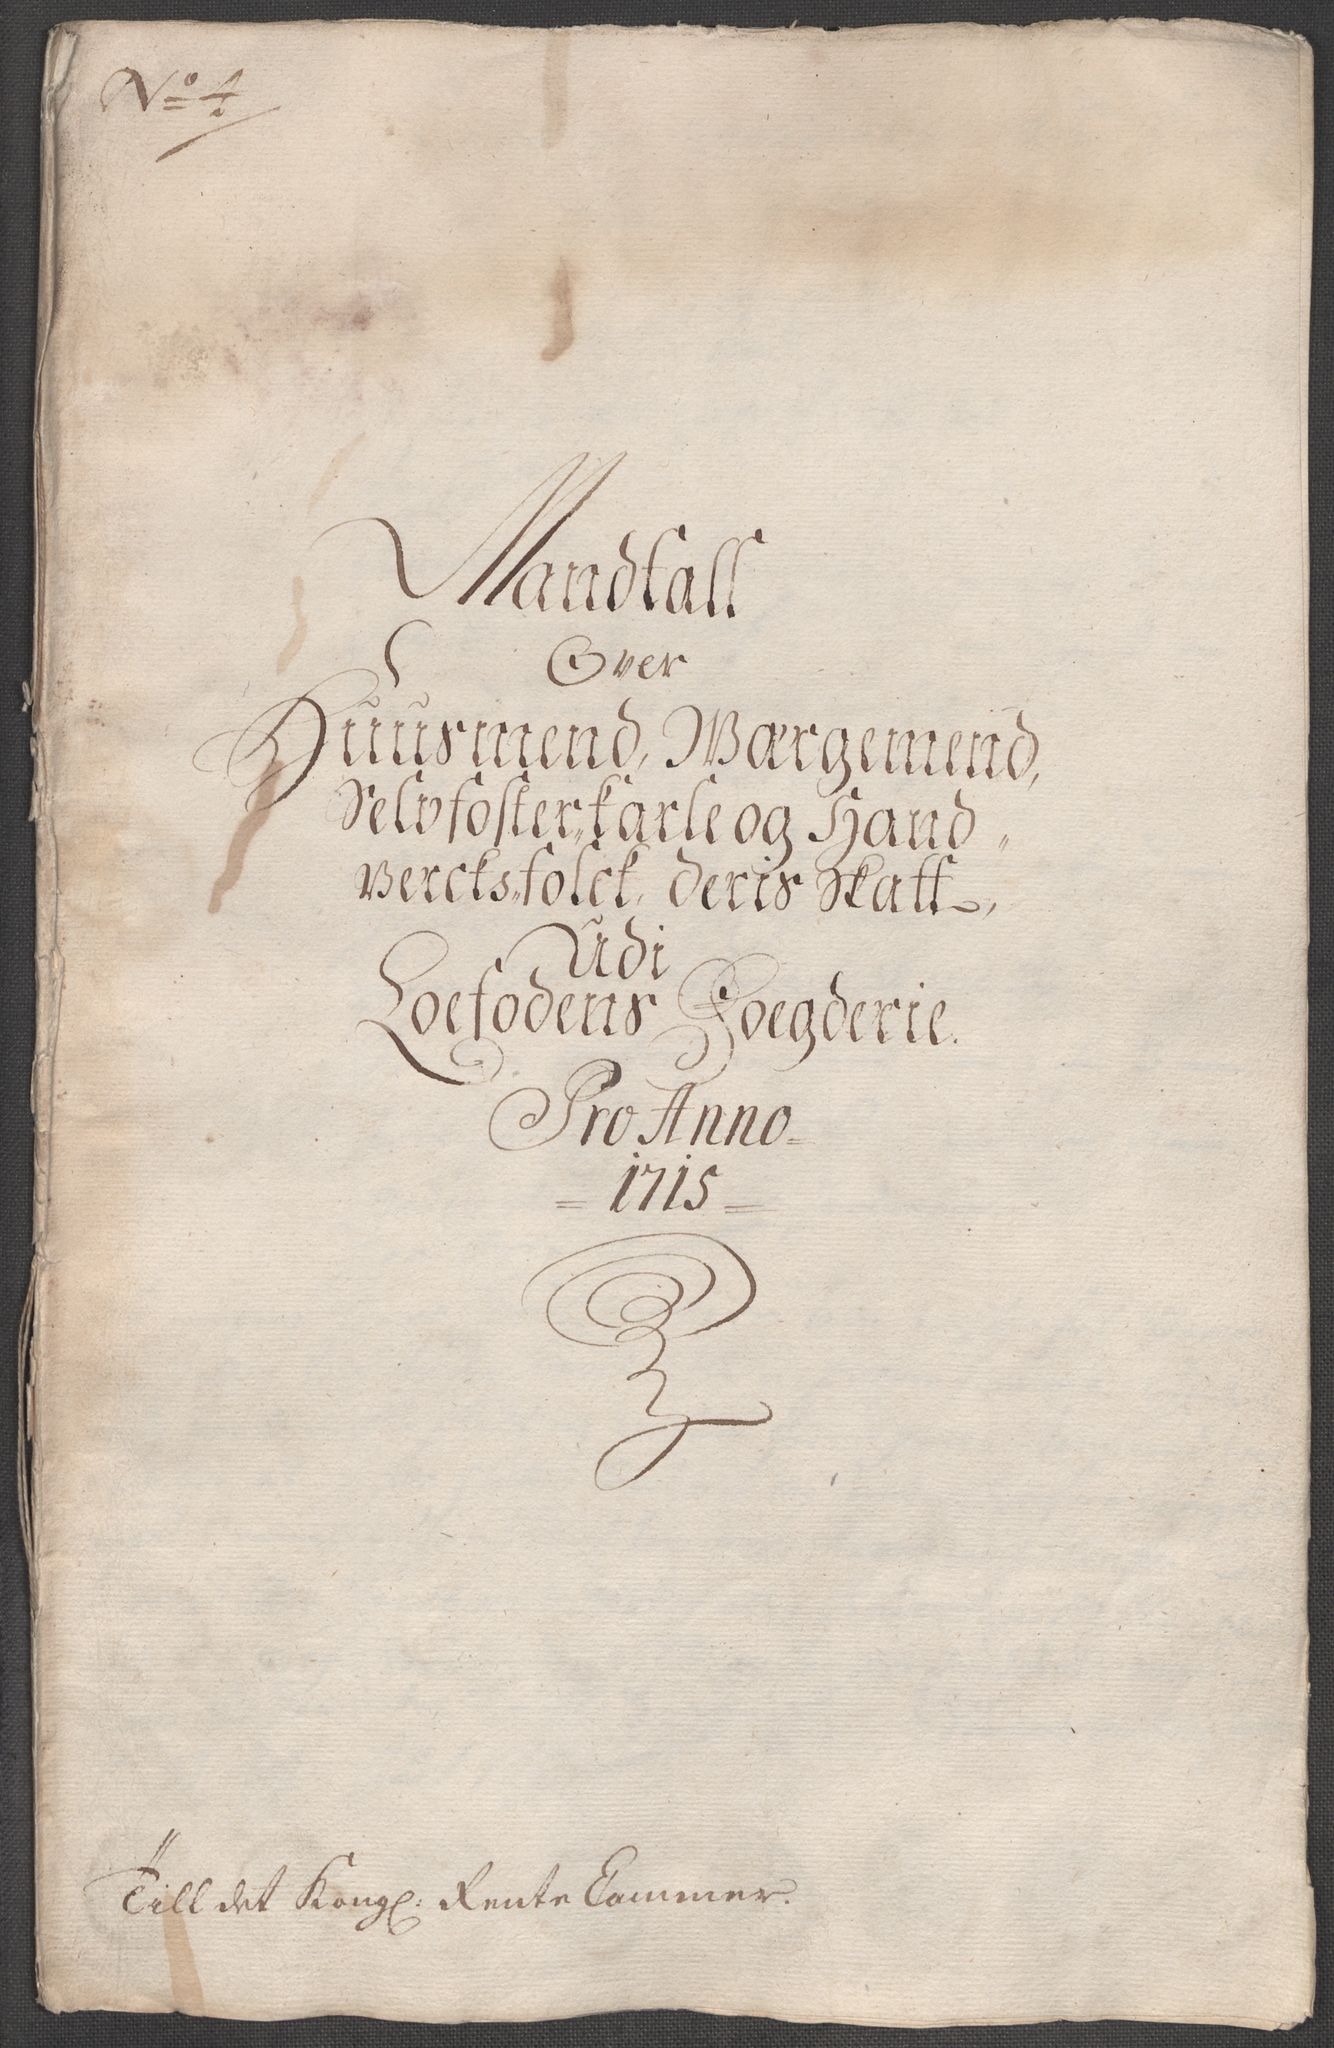 No 4
Mandtall
Over
Huusmend, Wærgemend,
Selvfoster-karle og Hand-
vercks-folck, deris Skatt,
Udi
Loefodens Foegderie.
Pro Anno
1715
Till det Kongl: Rente Cammer.